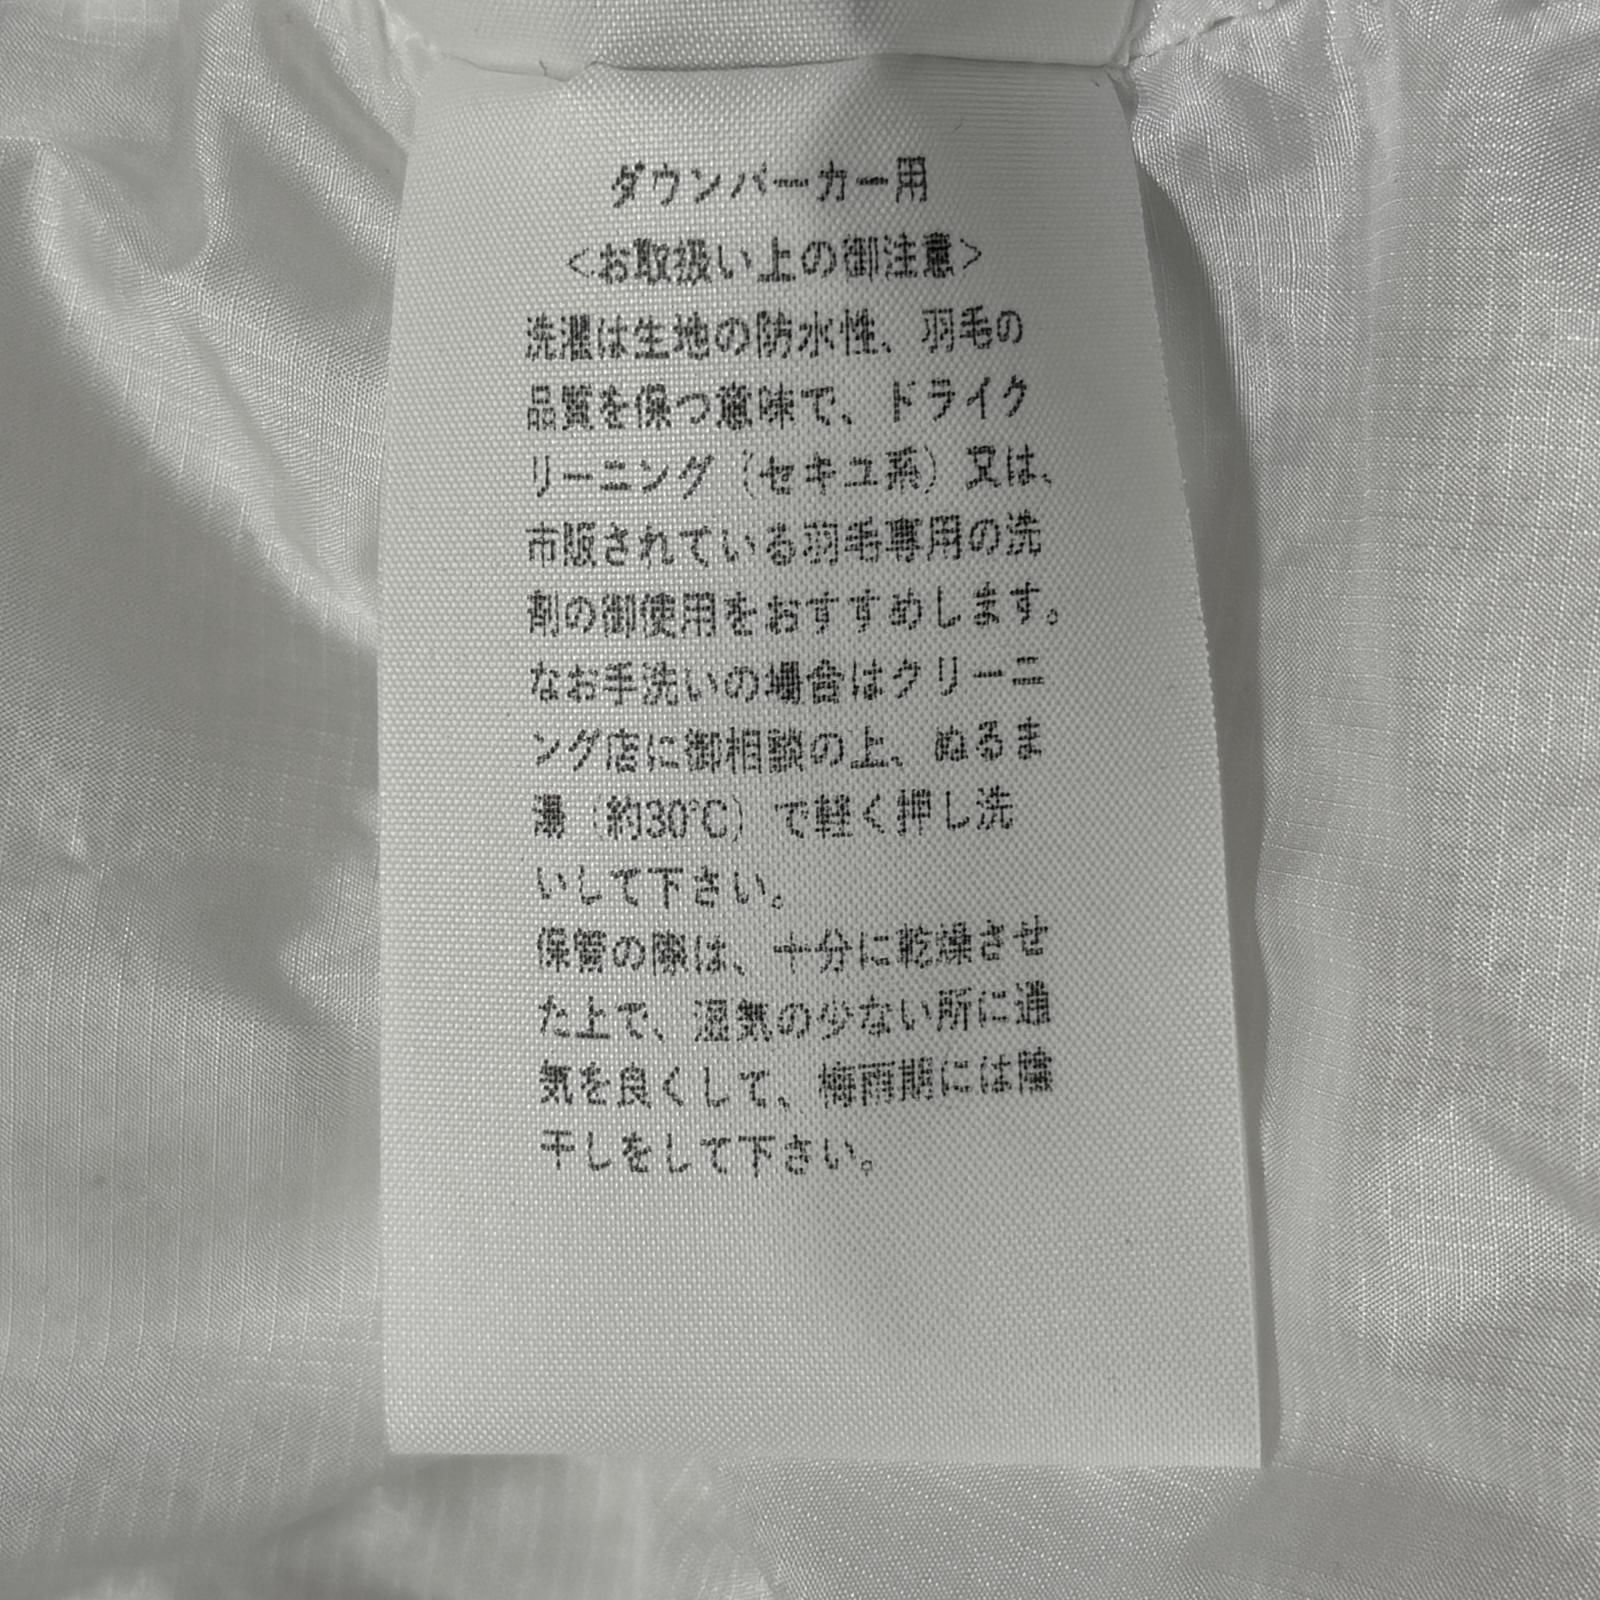 ダウンパーカー用
<お取扱い上の御注意>
洗濯は生地の防水性、羽毛の
品質を保つ意味で、ドライク
リーニング（セキユ系）又は、
市販されている羽毛専用の洗
剤の御使用をおすすめします。
なお手洗いの場合はクリーニ
ング店に御相談の上、ぬるま
湯（約30℃）で軽く押し洗
いして下さい。
保管の際は、十分に乾燥させ
た上で、湿気の少ない所に通
気を良くして、梅雨期には陰
干しをして下さい。